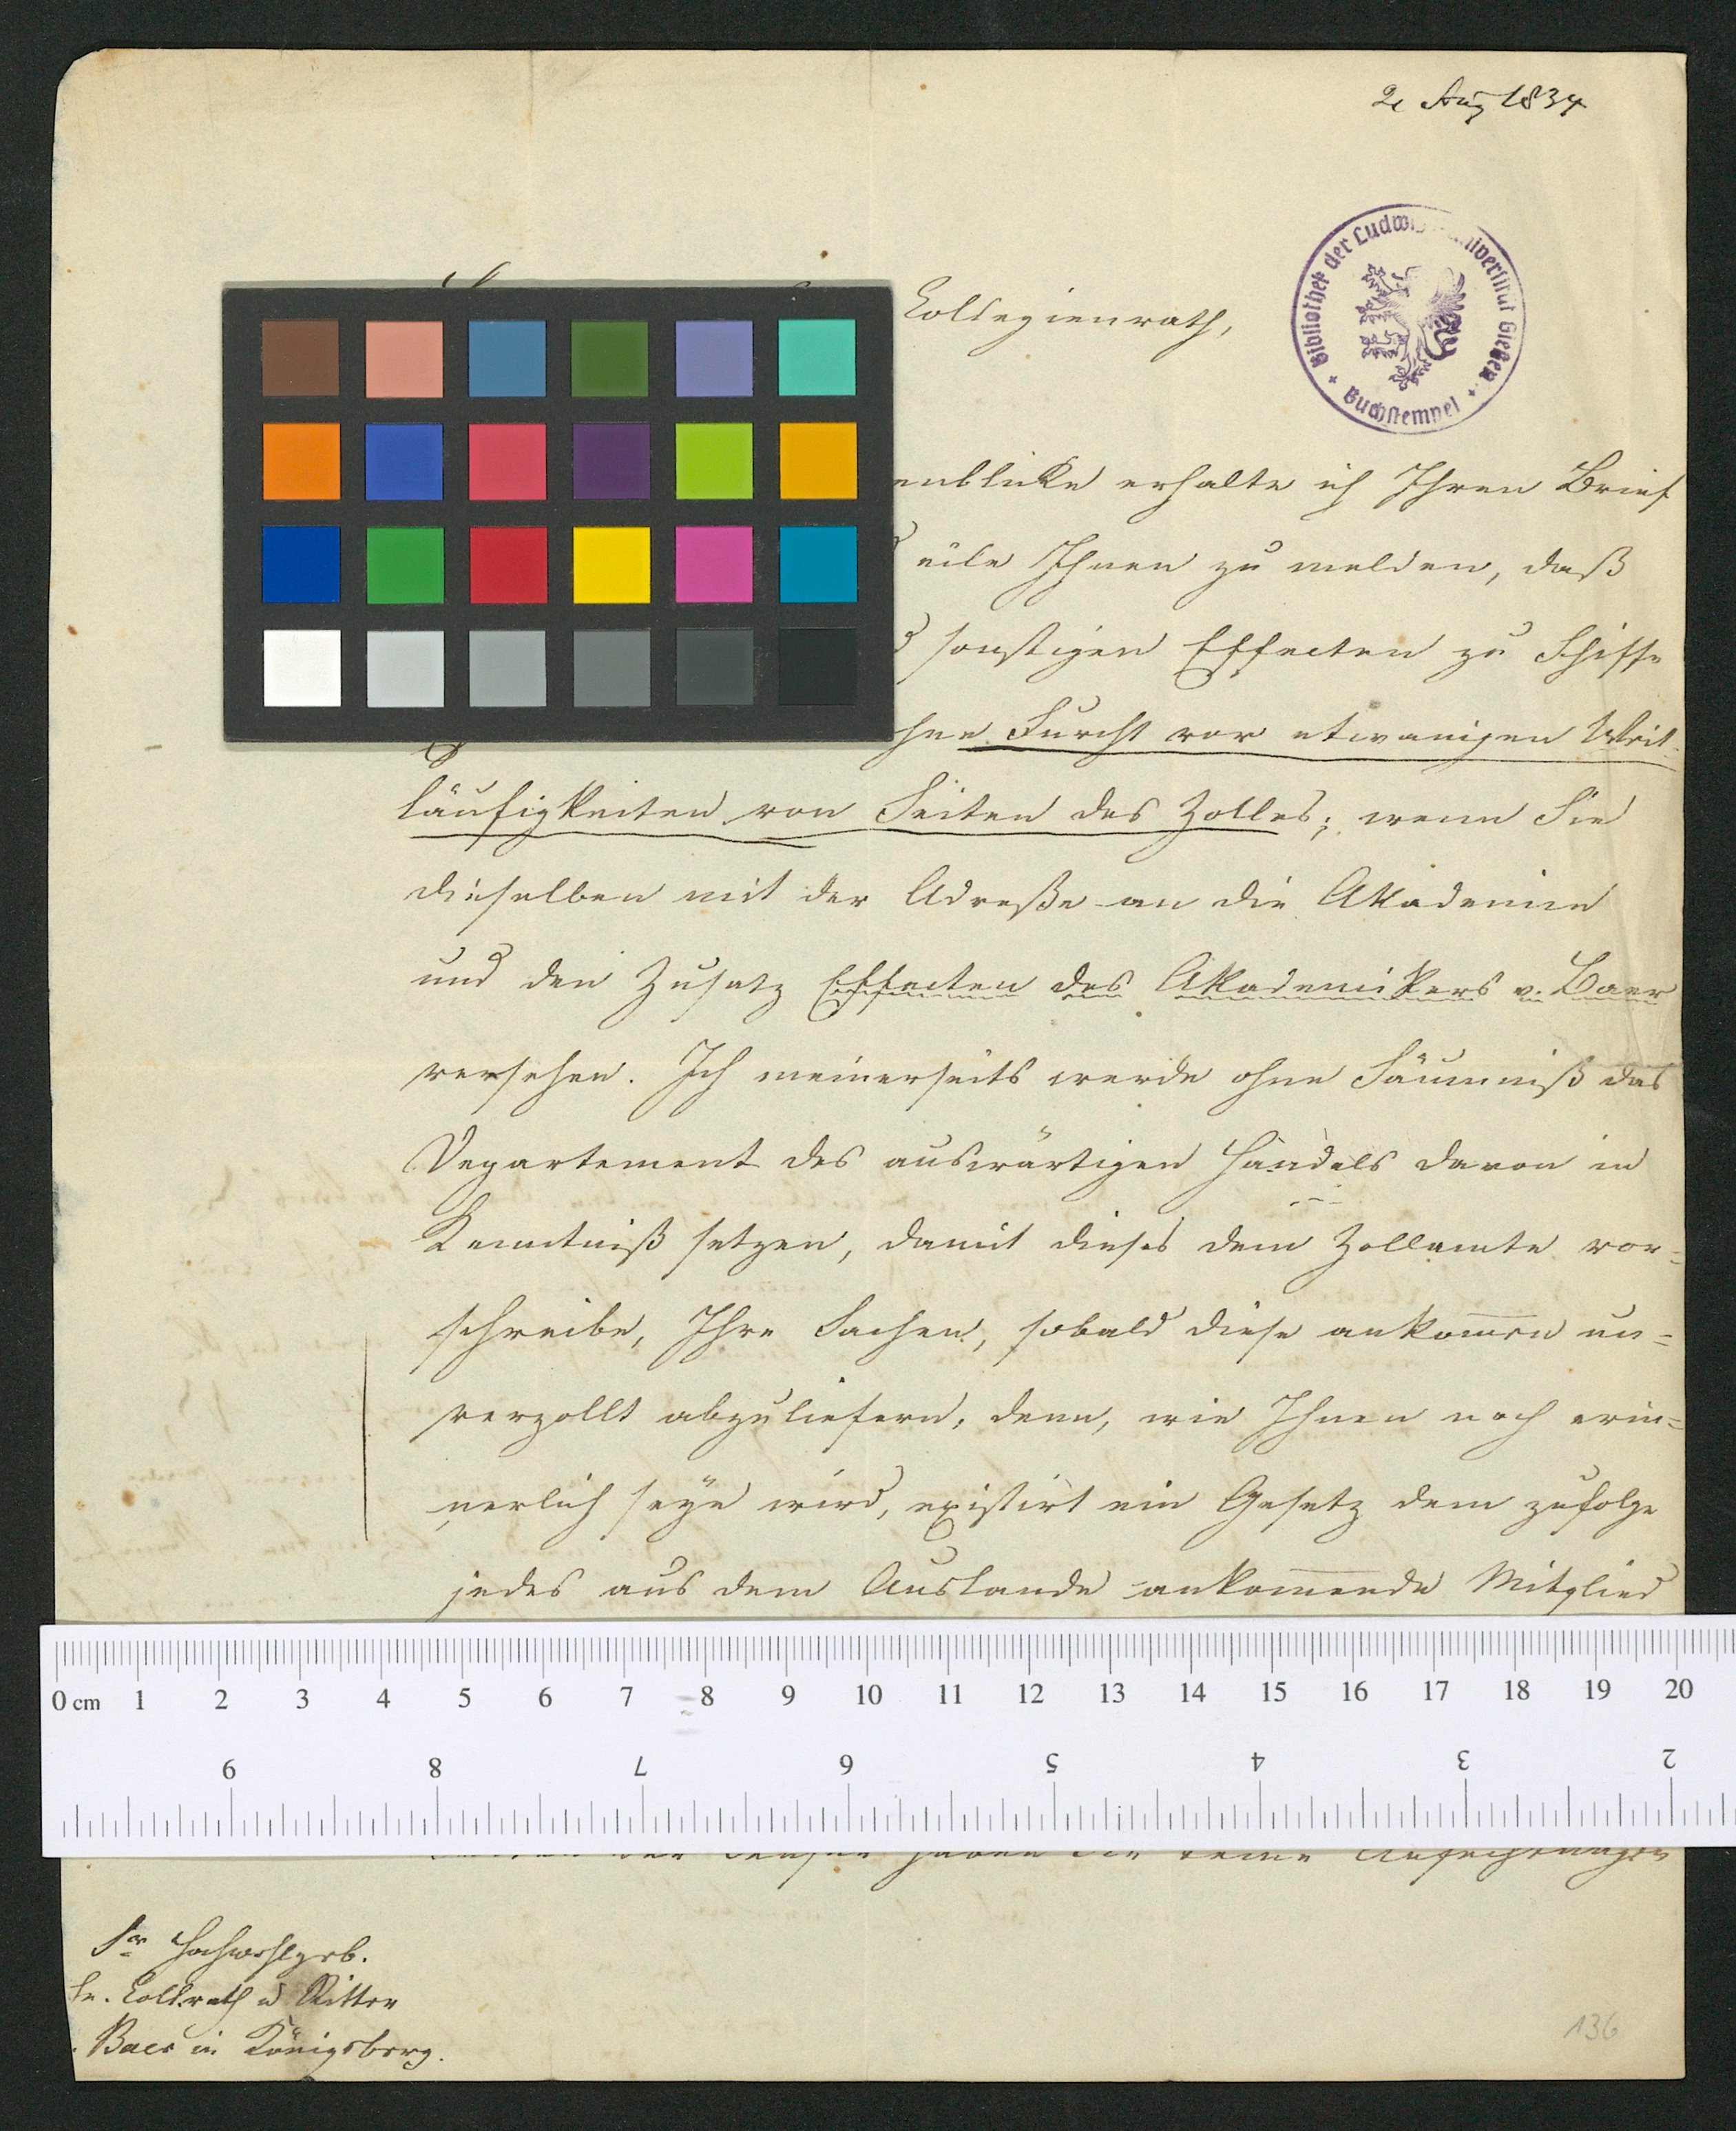 2 Aug 1834
Bibliothek der Ludwigs-Universität Gießen
Buchstempel
Collegienrath,
enblicke erhalte ich Ihren Brief
eile Ihnen zu melden, daß
sonstigen Effecten zu Schiffe
hne Furcht vor etwanigen Weit-
läufigkeiten von Seiten des Zolles; wenn Sie
dieselben mit der Adreße an die Akademie
und den Zusatz Effecten des Akademikers v. Baer
versehen. Ich meinerseits werde ohne Säumniß das
Departement des auswärtigen Handels davon in
Kenntniß setzen, damit dieses dem Zollamte vor=
schreibe, Ihre Sachen, sobald diese ankom̅en un=
verzollt abzuliefern, denn, wie Ihnen noch erin=
nerlich seyn wird, existirt ein Gesetz dem zufolge
jedes aus dem Auslande ankom̅ende Mitglied
0 cm 1 2 3 4 5 6 7 8 9 10 11 12 13 14 15 16 17 18 19 20
9 8 7 6 5 4 3 2
der Censur haben Sie keine Anfechtungen
Sr Hochwohlgeb.
Hr. Collrath u Ritter
Baer in Königsberg.
136